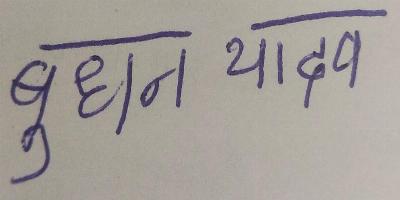 बुधान यादव